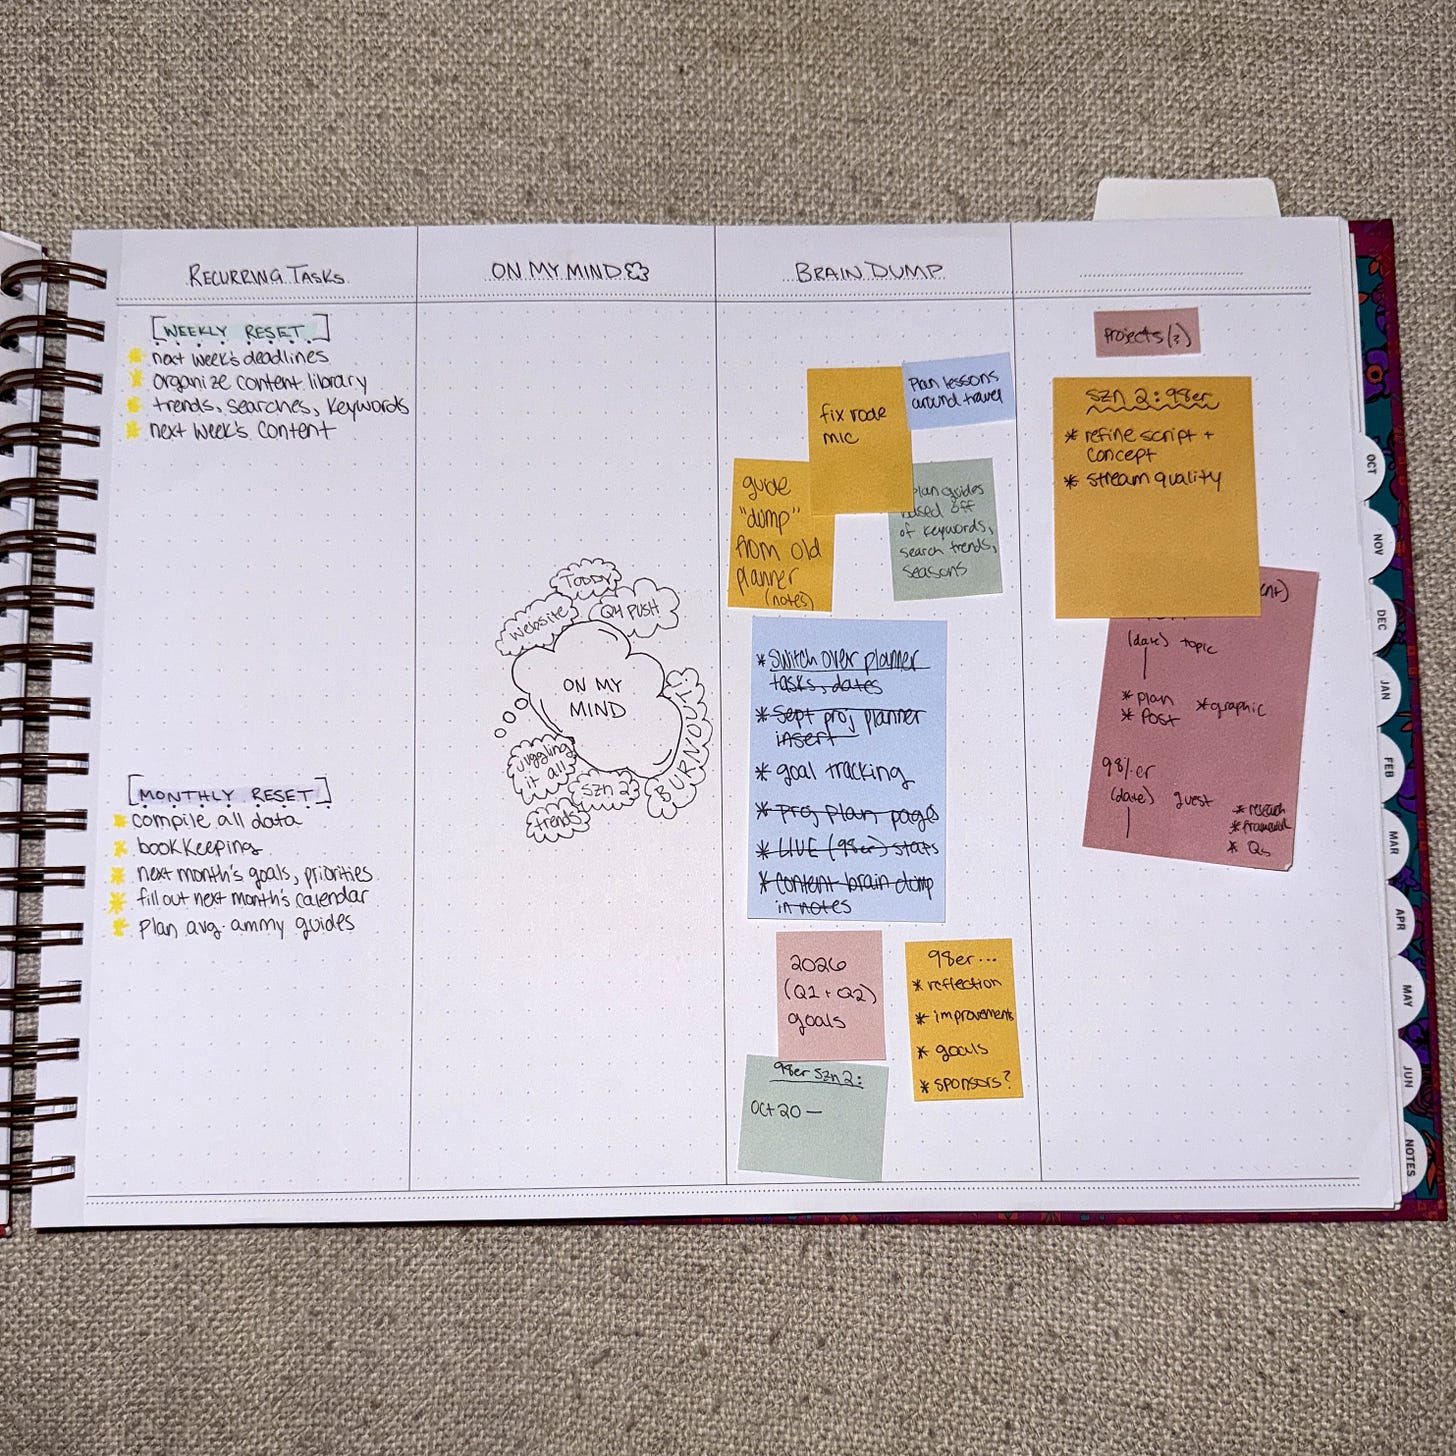 RECURRING TASKS
[WEEKLY RESET]
next week's deadlines
organize content library
trends, searches, keywords
next week's content
[MONTHLY RESET]
compile all data
bookkeeping
next month's goals, priorities
fill out next month's calendar
plan avg. ammy guides
ON MY MIND
TODDY
website
Q4 PUSH
ON MY
MIND
BURNOUT
juggling
it all
SZN 2
trends
BRAIN DUMP
fix rode
mic
Plan lessons
around travel
guide
"dump"
from old
planner
(notes)
plan guides
based off
of keywords,
search trends,
seasons
* switch over planner
tasks, dates
* Sept proj planner
insert
* goal tracking
* proj plan pages
* LIVE (98er) stats
* content brain dump
in notes
2026
(Q1 + Q2)
goals
98er...
* reflection
* improvements
* goals
* sponsors?
98er Szn 2:
Oct 20 —
Projects (?)
SZN 2: 98er
* refine script +
concept
* stream quality
(date) topic
* plan
* graphic
* Post
98%er
(date) guest
* research
* Qs
OCT
NOV
DEC
JAN
FEB
MAR
APR
MAY
JUN
NOTES